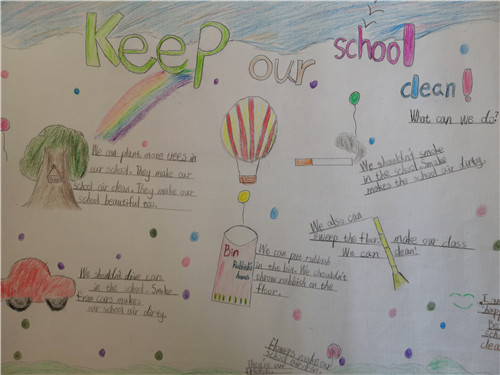 Keep our school
clean!
What can we do?
We can plant more trees in
our school. They make our
school air clean. They make our
school beautiful too.
We shouldn't smoke
in the school. Smoke
makes the school air dirty.
We also can
sweep the floor make our class
clean!
We can
Bin
Rubbish's
house
We can put rubbish
in the bin. We shouldn't
throw rubbish on the
floor.
We shouldn't drive cars
in the school. Smoke
from cars makes
our school air dirty.
Flowers make our
school our
I am
happy
clean